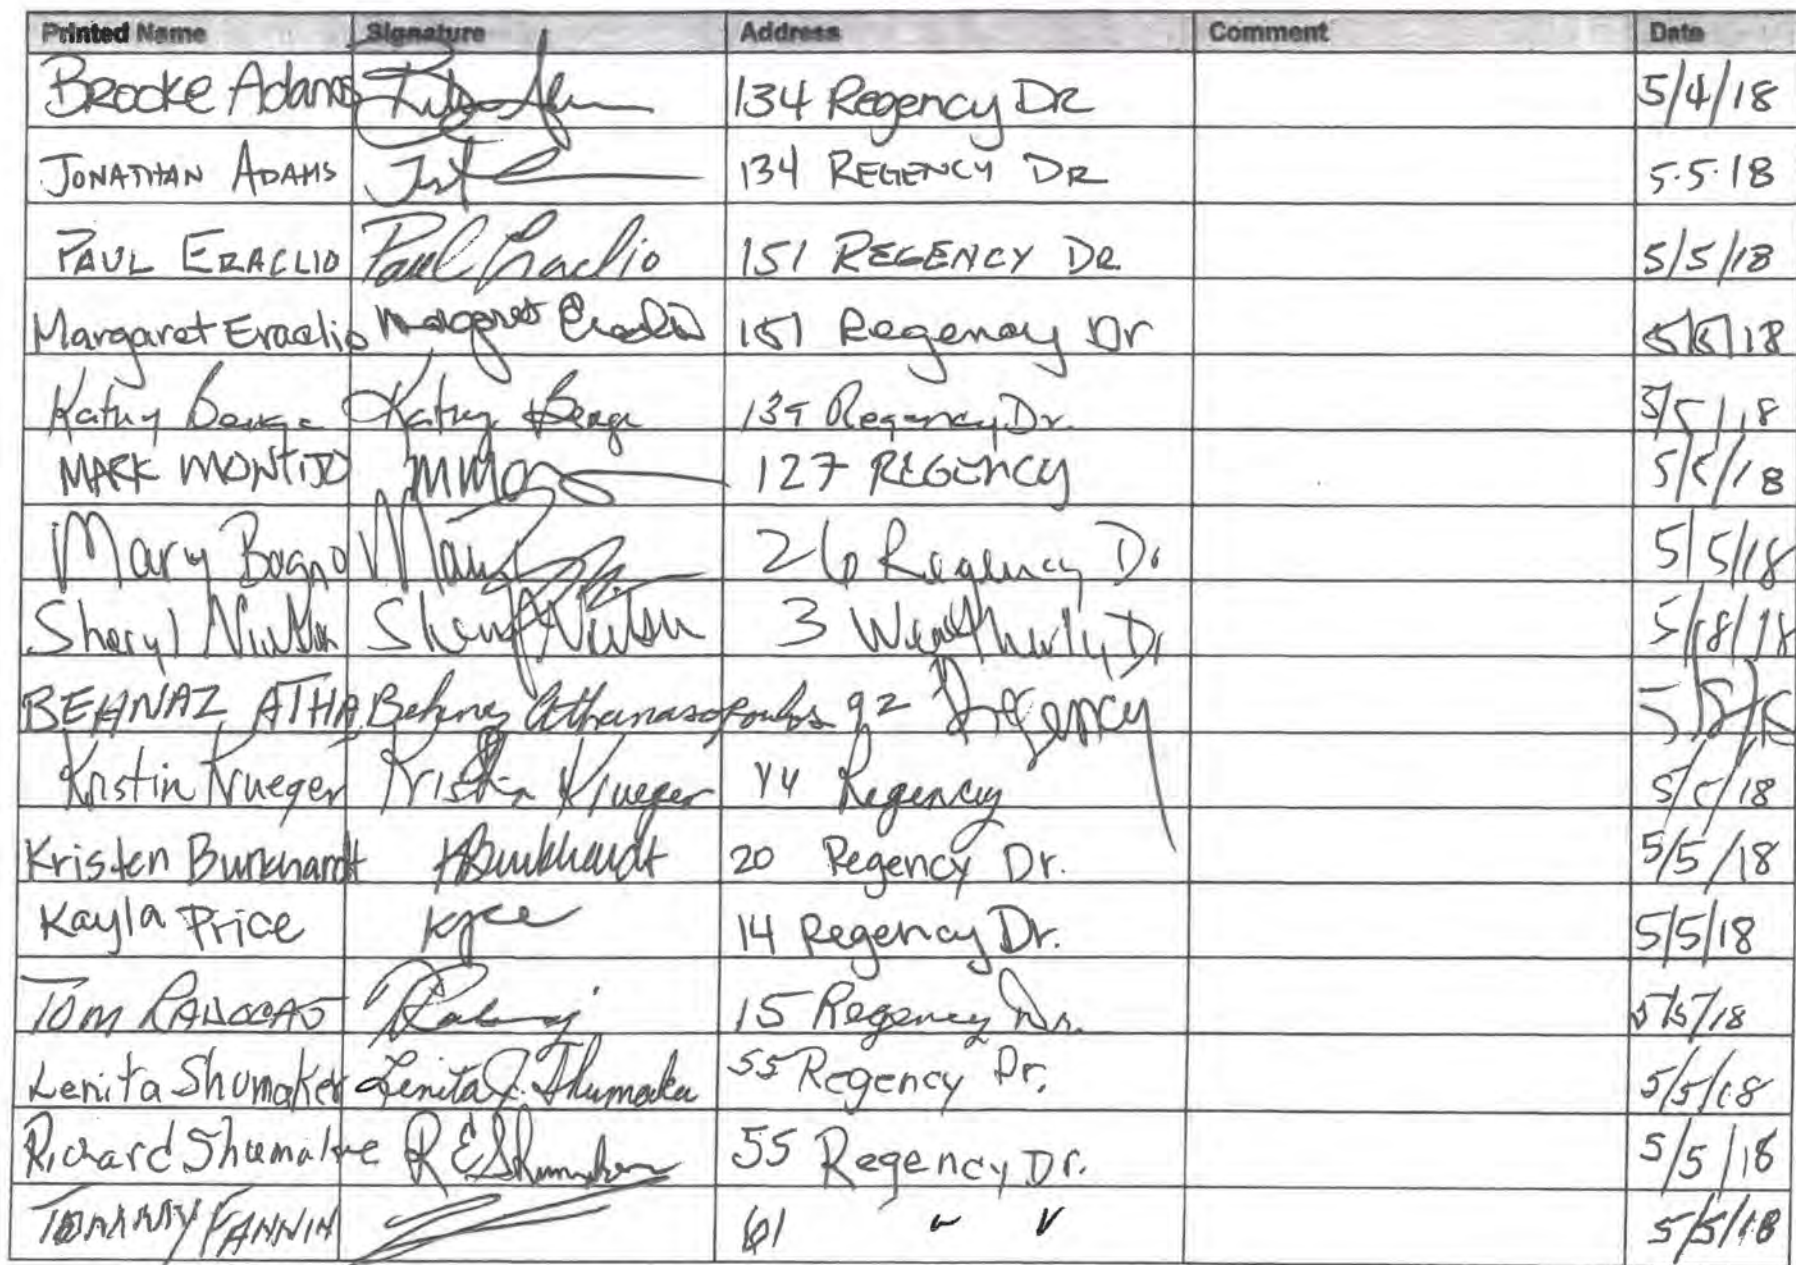 Printed Name Signature Address Comment Date
Brooke Adams 134 Regency DR 5/4/18
JONATHAN ADAMS 134 REGENCY DR 5.5.18
PAUL ERACLIO Paul Eraclio 151 REGENCY DR. 5/5/18
Margaret Eraclio Margaret Eraclio 151 Regency Dr 5/5/18
Kathy Kathy Regency Dr. 5/5/18
MARK MONTIJO 127 REGENCY 5/5/18
Mary Bogno Mary 26 Regency Dr 5/5/18
Sheryl Sheryl 3 Dr
BEHNAZ ATHA Behnaz Athanasopoulos 92 Regency
Kristin Krueger Kristin Krueger 44 Regency 5/5/18
Kristen Burkhardt KBurkhardt 20 Regency Dr. 5/5/18
Kayla Price 14 Regency Dr. 5/5/18
TOM 15 Regency Dr. 5/5/18
Lenita Shumaker Lenita J. Shumaker 55 Regency Dr. 5/5/18
Richard Shumaker R E Shumaker 55 Regency Dr. 5/5/18
TOMMY FANNIN 61 " " 5/5/18